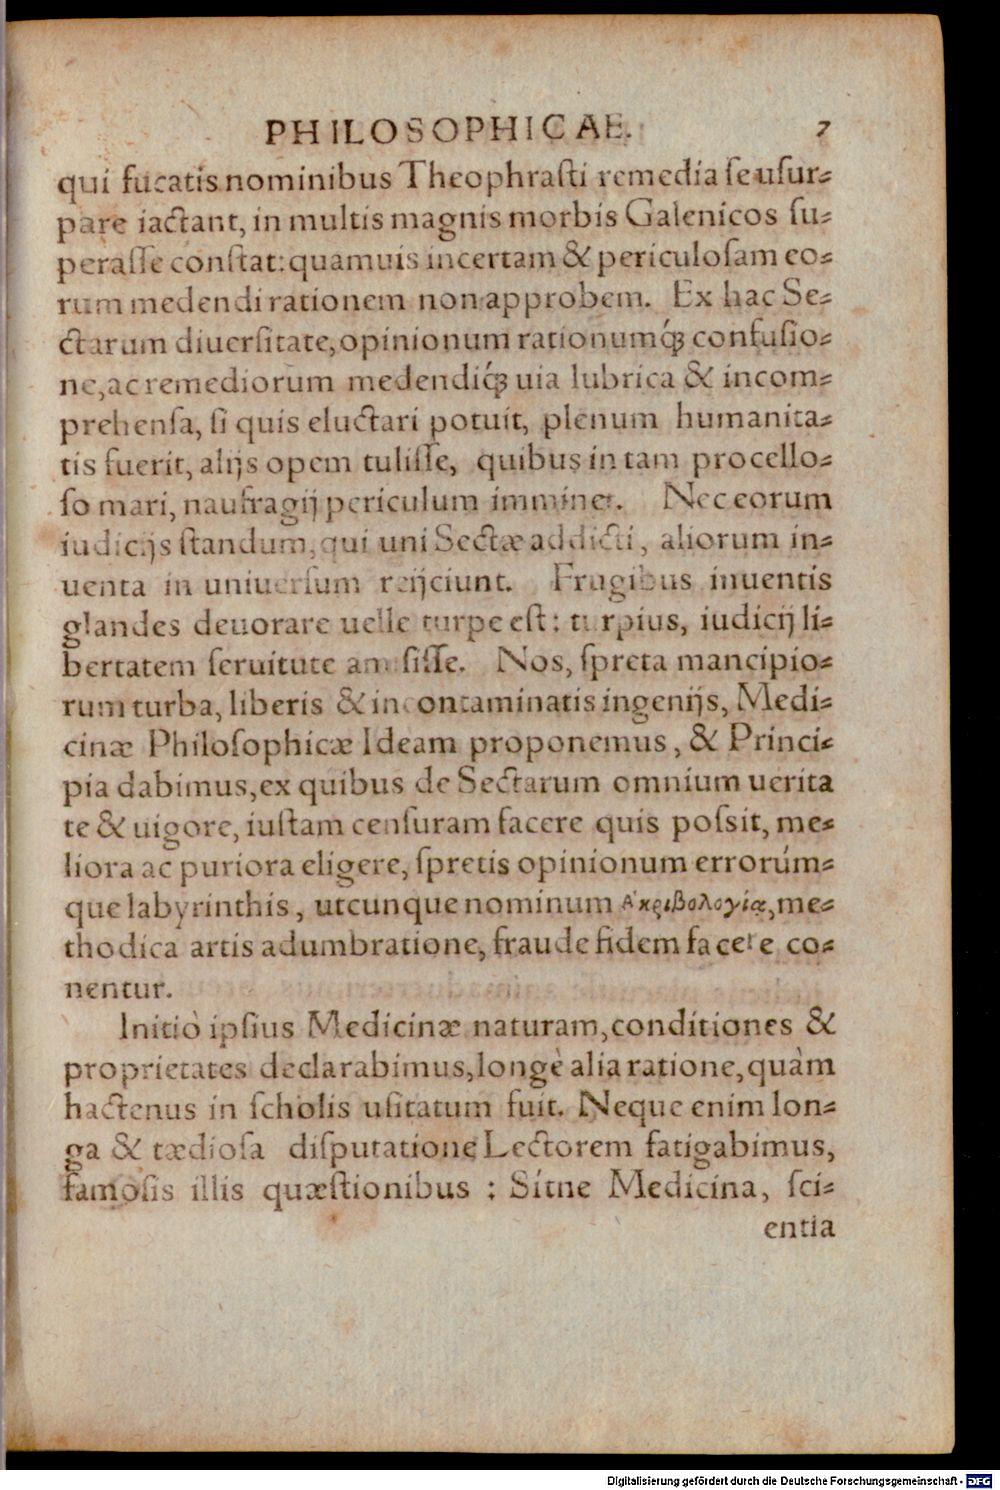 PHILOSOPHICAE. 7
qui fucatis nominibus Theophraſti remedia ſe uſur⸗
pare iactant, in multis magnis morbis Galenicos ſu⸗
peraſſe conſtat: quamuis incertam & periculoſam eo⸗
rum medendi rationem non approbem. Ex hac Se⸗
ctarum diuerſitate, opinionum rationumq́ꝫ confuſio⸗
ne, ac remediorum medendiq́ꝫ uia lubrica & incom⸗
prehenſa, ſi quis eluctari potuit, plenum humanita⸗
tis fuerit, alijs opem tuliſſe, quibus in tam procello⸗
ſo mari, naufragij periculum imminet. Nec eorum
iudicijs ſtandum, qui uni Sectæ addicti, aliorum in⸗
uenta in uniuerſum reijciunt. Frugibus inuentis
glandes deuorare uelle turpe eſt: turpius, iudicij li⸗
bertatem ſeruitute amiſiſſe. Nos, ſpreta mancipio⸗
rum turba, liberis & incontaminatis ingenijs, Medi⸗
cinæ Philoſophicæ Ideam proponemus, & Princi⸗
pia dabimus, ex quibus de Sectarum omnium uerita
te & uigore, iuſtam cenſuram facere quis poſsit, me⸗
liora ac puriora eligere, ſpretis opinionum errorúm⸗
que labyrinthis, utcunque nominum Ἀκριβολογία, me⸗
thodica artis adumbratione, fraude fidem facere co⸗
nentur.
Initiò ipſius Medicinæ naturam, conditiones &
proprietates declarabimus, longè alia ratione, quàm
hactenus in ſcholis uſitatum fuit. Neque enim lon⸗
ga & tædioſa diſputatione Lectorem fatigabimus,
famoſis illis quæſtionibus : Sítne Medicina, ſci⸗
entia
Digitalisierung gefördert durch die Deutsche Forschungsgemeinschaft - DFG